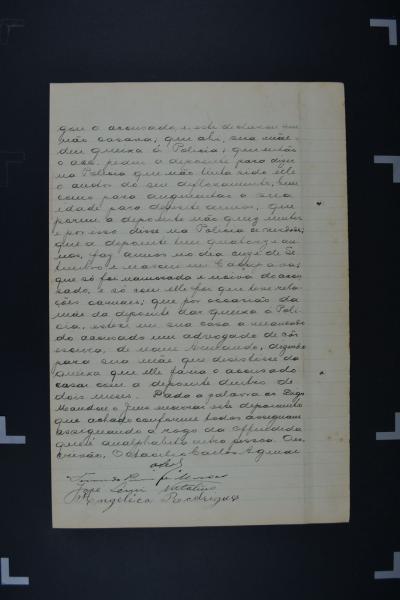 gou o accusado, e este declarou que
não casava; que ahi, sua mãe
deu queixa á Policia; que então
o acc. pediu a depoente para dizer
na Policia que não tinha sido elle
o autor do seu defloramento, bem
como para augmentar a sua
idade para dezesete annos; que
porem a depoente não quiz mentir
e por isso disse na Policia a verdade;
que a depoente tem quatorze an-
nos, faz annos no dia onze de Se-
tembro e nasceu em
que só foi namorada e noiva do accu-
sado, e só com elle foi que teve rela-
ções carnaes; que por occasião da
mãe da depoente dar queixa á Poli-
cia, esteve em sua casa a mandado
do accusado um advogado de côr
escura, de nome Armando, dizendo
para sua mãe que desistisse da
queixa que elle faria o accusado
casar com a depoente dentro de
dois meses. Dada a palavra ao
Mandou o Juiz encerrar este depoimento
que achado conforme todos assignam
assignando a rogo da offendida
que é analphabeta outra pessoa. Eu,
escrivão, Octacilio Carlos Aguiar

José Luiz
Angelica Rodrigues